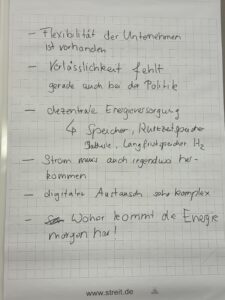 – Flexibilität der Unternehmen
ist vorhanden
– Verlässlichkeit fehlt
gerade auch bei der Politik
– dezentrale Energieversorgung
↳ Speicher, Kurzzeitspeicher
Batterie, Langfristspeicher H2
– Strom muss auch irgendwo her-
kommen
– digitaler Austausch sehr komplex
– Woher kommt die Energie
morgen her!
www.streit.de